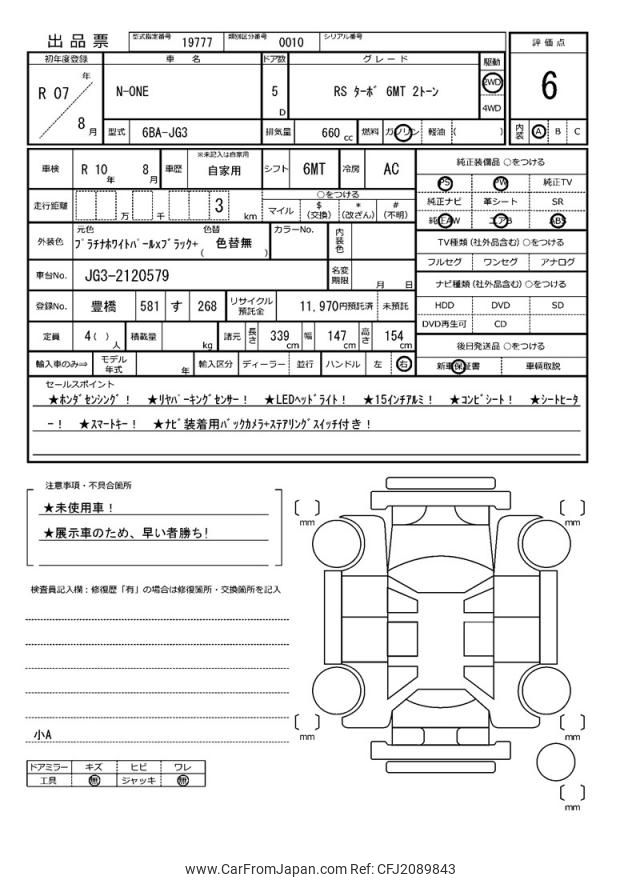 出品票 型式指定番号 19777 類別区分番号 0010 シリアル番号
評価点
6
内装 A B C
初年度登録 車名 ドア数 グレード 駆動
R 07 年 8 月 N-ONE 5 D RS ターボ 6MT 2トーン 2WD 4WD
型式 6BA-JG3 排気量 660 cc 燃料 ガソリン 軽油 ( )
車検 R 10 年 8 月 車歴 ※未記入は自家用 自家用 シフト 6MT 冷房 AC
走行距離 万 千 3 km ○をつける マイル $ (交換) * (改ざん) # (不明)
外装色 元色 プラチナホワイトパールxブラック+ 色替 ( 色替無 ) カラーNo. 内装色
車台No. JG3-2120579 名変期限 月 日
登録No. 豊橋 581 す 268 リサイクル預託金 11,970円預託済 未預託
定員 4( ) 人 積載量 kg 諸元 長さ 339 cm 幅 147 cm 高さ 154 cm
輸入車のみ⇒ モデル年式 年 輸入区分 ディーラー 並行 ハンドル 左 右
純正装備品 ○をつける
PS PW 純正TV
純正ナビ 革シート SR
純正AW エアB ABS
TV種類 (社外品含む) ○をつける
フルセグ ワンセグ アナログ
ナビ種類 (社外品含む) ○をつける
HDD DVD SD
DVD再生可 CD
後日発送品 ○をつける
新車保証書 車輌取説
セールスポイント
★ホンダセンシング！ ★リヤパーキングセンサー！ ★LEDヘッドライト！ ★15インチアルミ！ ★コンビシート！ ★シートヒータ
ー！ ★スマートキー！ ★ナビ装着用バックカメラ+ステアリングスイッチ付き！
注意事項・不具合箇所
★未使用車！
★展示車のため、早い者勝ち!
検査員記入欄：修復歴「有」の場合は修復箇所・交換箇所を記入
小A
ドアミラー キズ ヒビ ワレ
工具 無 ジャッキ 無
mm
mm
mm
mm
mm
www.CarFromJapan.com Ref: CFJ2089843